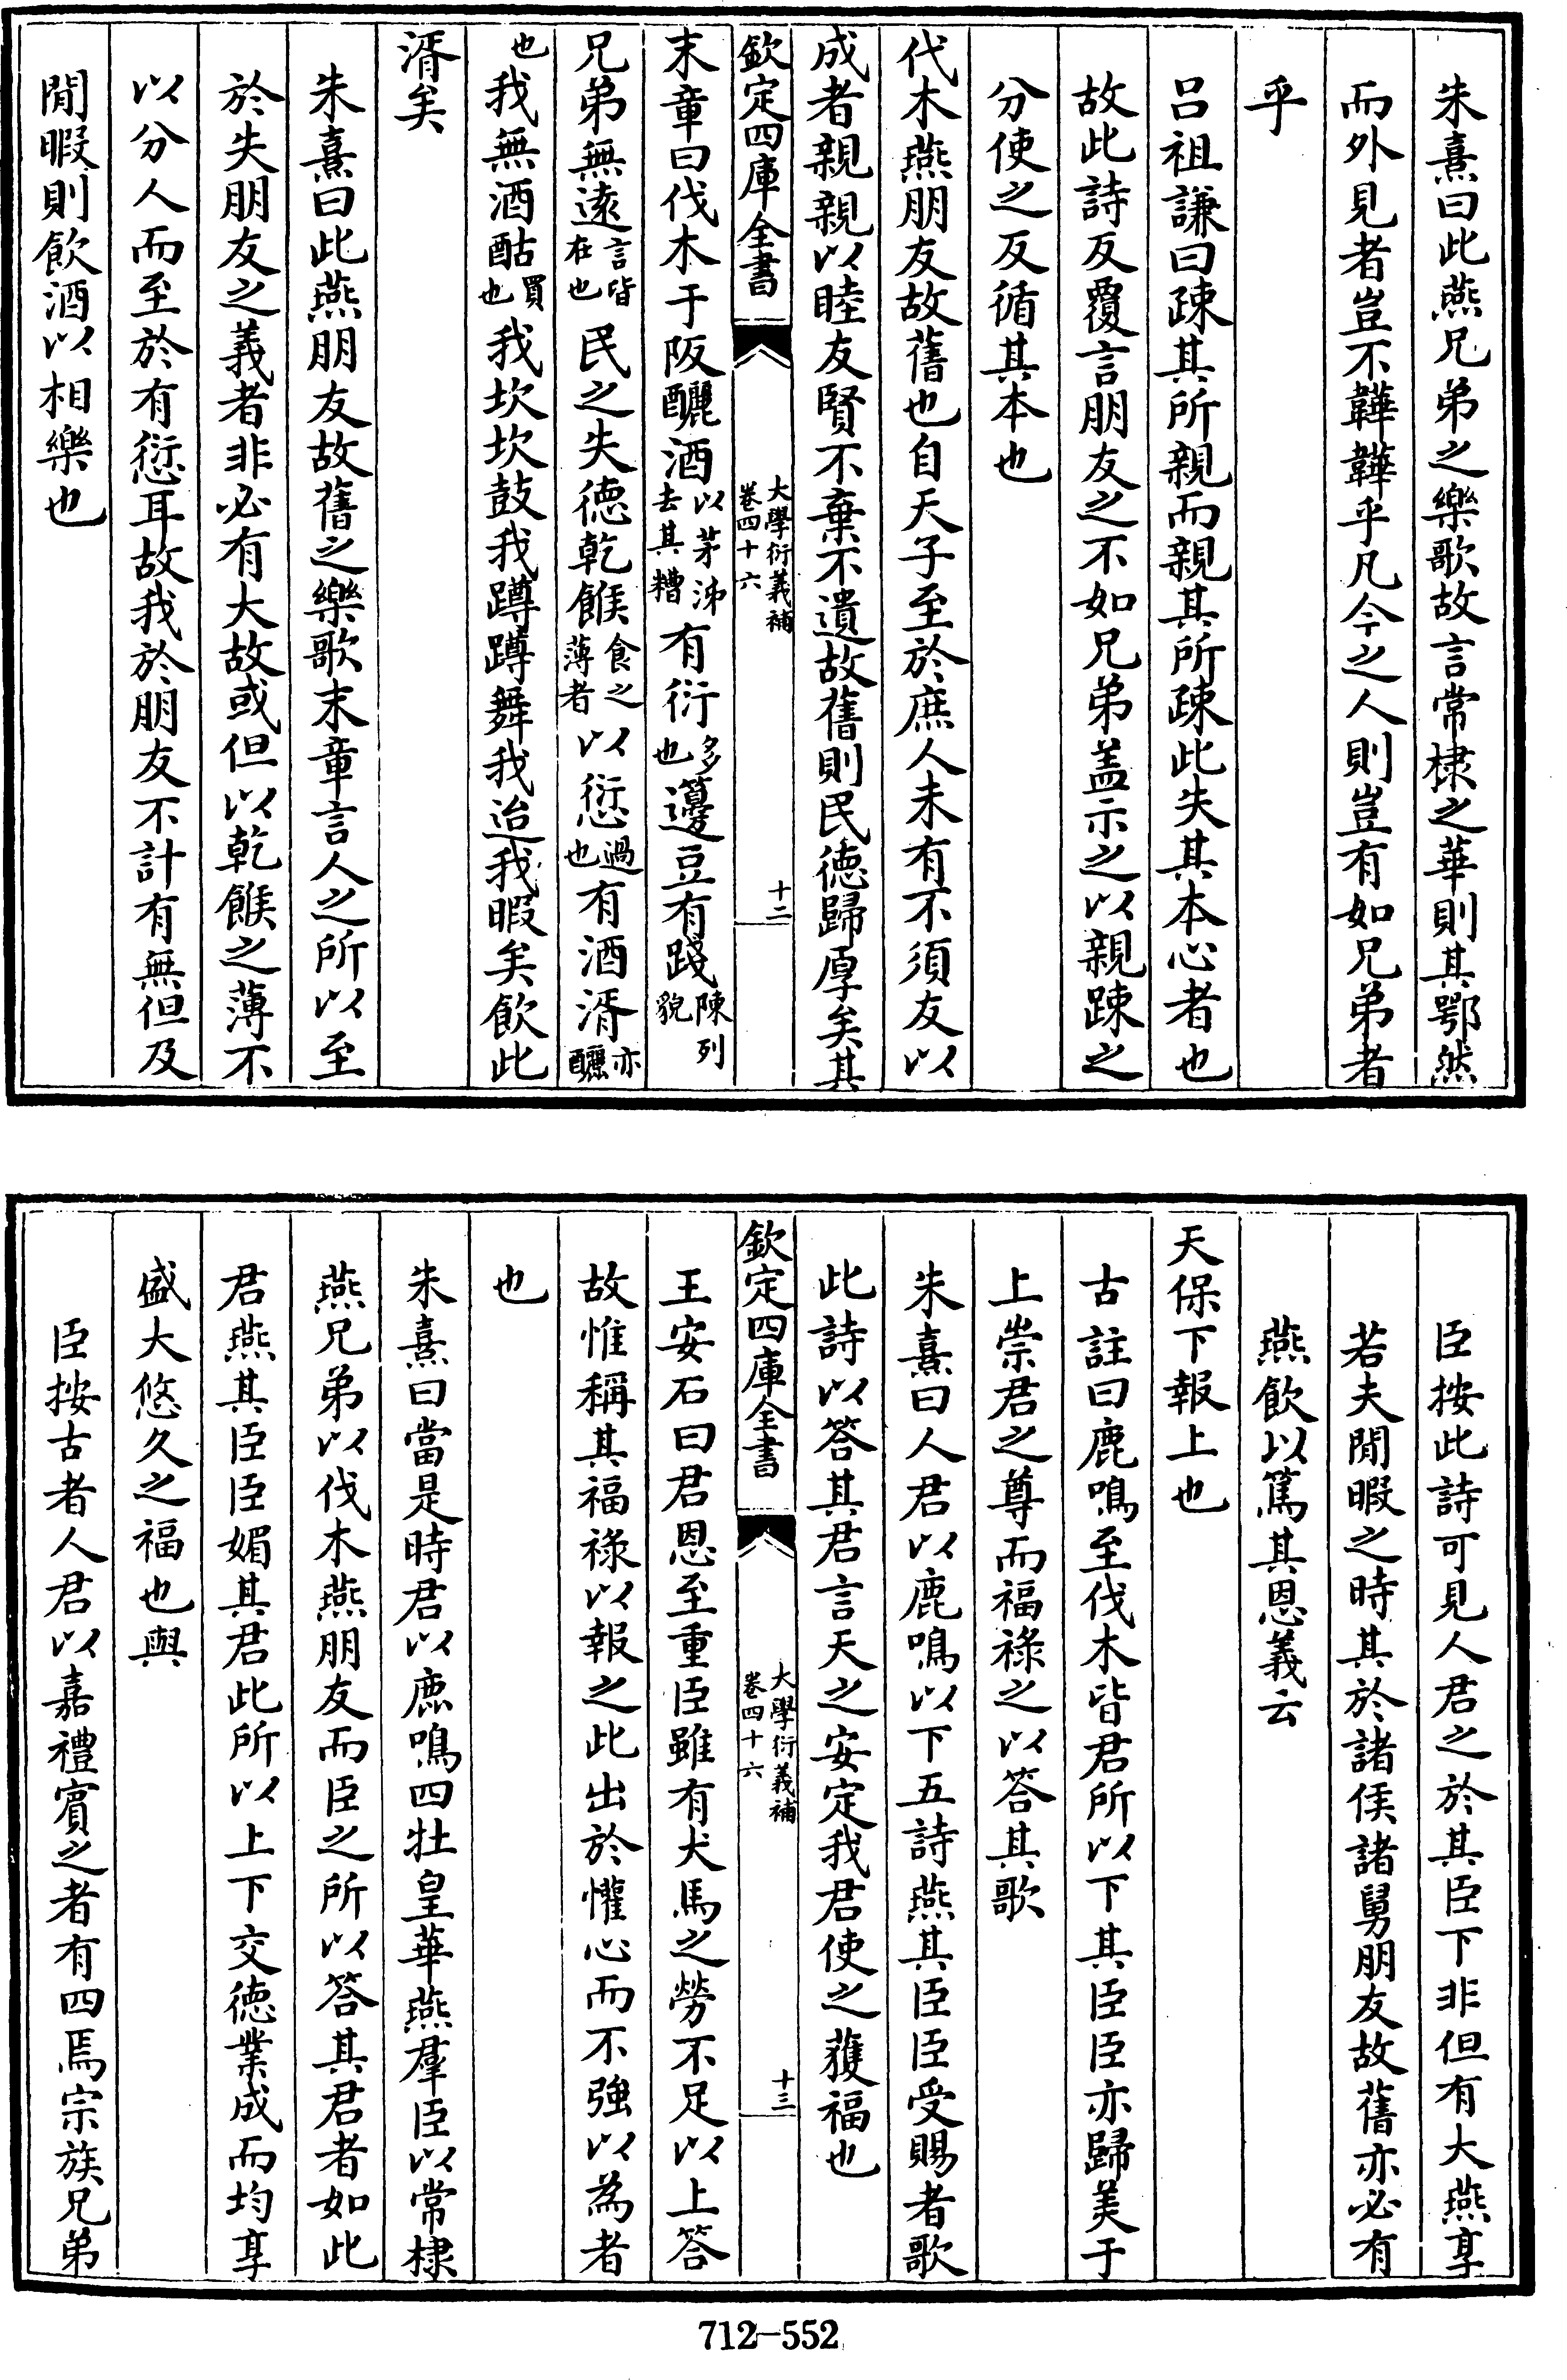 朱熹曰此燕兄弟之樂歌故言常棣之華則其鄂然
而外見者豈不韡韡乎凡今之人則豈有如兄弟者
乎
呂祖謙曰疎其所親而親其所疎此失其本心者也
故此詩反覆言朋友之不如兄弟盖示之以親踈之
分使之反循其本也
伐木燕朋友故舊也自天子至於庶人未有不須友以
成者親親以睦友賢不棄不遺故舊則民徳歸厚矣其
欽定四庫全書 大學衍義補 卷四十六 十二
末章曰伐木于阪釃酒以茅泲去其糟有衍多也籩豆有踐陳列貌
兄弟無遠言皆在也民之失徳乾餱食之薄者以愆過也有酒湑亦釃
也我無酒酤買也我坎坎鼓我蹲蹲舞我迨我暇矣飲此
湑矣
朱熹曰此燕朋友故舊之樂歌末章言人之所以至
於失朋友之義者非必有大故或但以乾餱之薄不
以分人而至於有愆耳故我於朋友不計有無但及
閒暇則飲酒以相樂也
臣按此詩可見人君之於其臣下非但有大燕享
若夫閒暇之時其於諸侯諸舅朋友故舊亦必有
燕飲以篤其恩義云
天保下報上也
古註曰鹿鳴至伐木皆君所以下其臣臣亦歸美于
上崇君之尊而福祿之以答其歌
朱熹曰人君以鹿鳴以下五詩燕其臣臣受賜者歌
此詩以答其君言天之安定我君使之獲福也
欽定四庫全書 大學衍義補 卷四十六 十三
王安石曰君恩至重臣雖有犬馬之勞不足以上答
故惟稱其福祿以報之此出於懽心而不強以為者
也
朱熹曰當是時君以鹿鳴四牡皇華燕羣臣以常棣
燕兄弟以伐木燕朋友而臣之所以答其君者如此
君燕其臣臣媚其君此所以上下交徳業成而均享
盛大悠久之福也與
臣按古者人君以嘉禮賓之者有四焉宗族兄弟
712-552